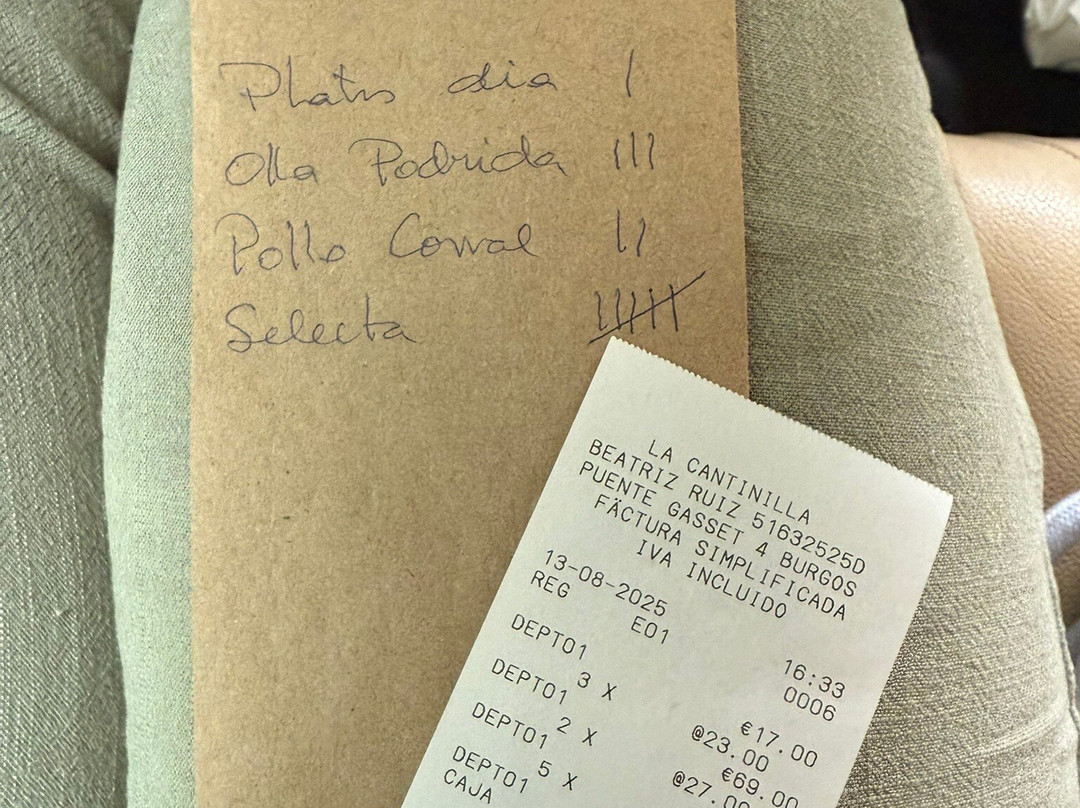 Platos dia |
Olla Podrida |||
Pollo Corral ||
Selecta
LA CANTINILLA
BEATRIZ RUIZ 51632525D
PUENTE GASSET 4 BURGOS
FÄCTURA SIMPLIFICADA
IVA INCLUIDO
13-08-2025 16:33
REG E01 0006
DEPTO1 €17.00
3 X @23.00
DEPTO1 €69.00
2 X @27.00
DEPTO1
5 X
DEPTO1
CAJA